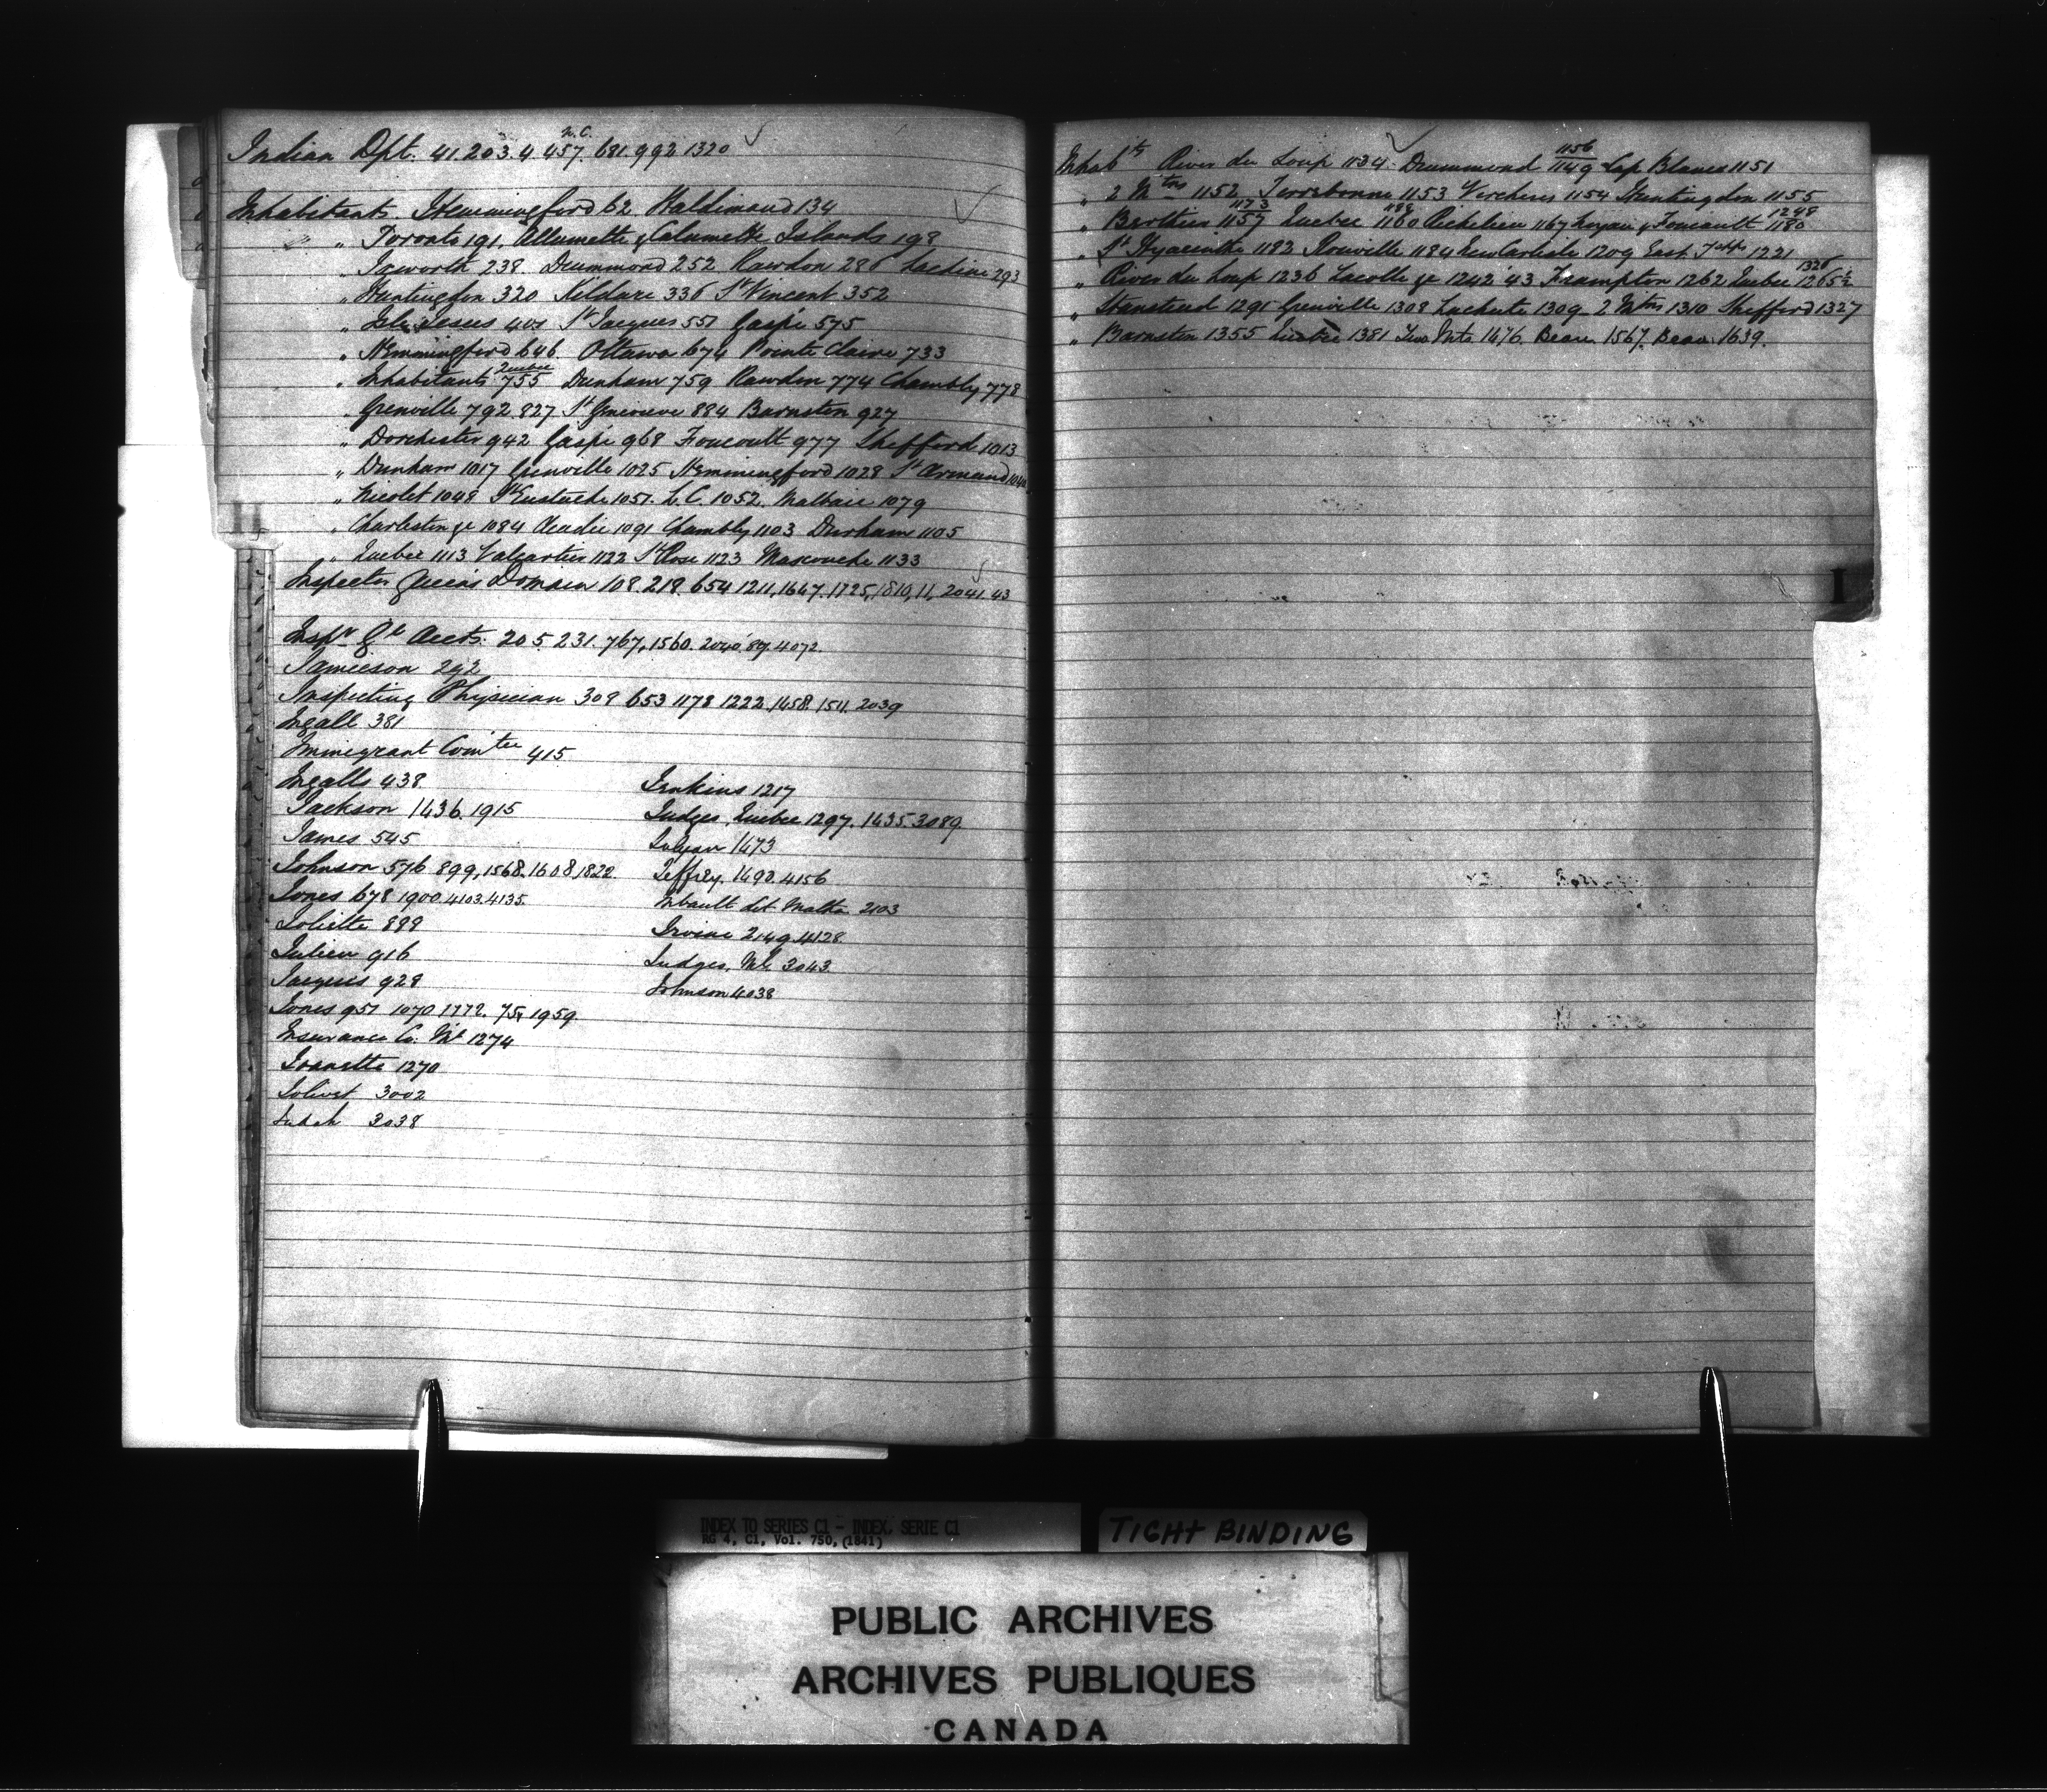 Indian Dpt. 41. 203. 4 457. 681. 992 1320
Inhabitants. Hemmingford 62 Haldimand 134
" Toronto 191, Allumette & Calumette Islands 198
" Ixworth 238. Drummond 252 Rawdon 286 Lachine 293
" Huntingdon 320 Kildare 336 St Vincent 352
" Isle Jesus 401 St Jacques 551 Gaspé 575
" Hemmingford 646 Ottawa 674 Pointe Claire 733
" Inhabitants Quebec 755 Dunham 759 Rawdon 774 Chambly 778
" Grenville 792 827 St Genevieve 884 Barnston 927
" Dorchester 942 Gaspé 968 Foucoult 977 Shefford 1013
" Dunham 1017 Grenville 1025 Hemmingford 1028 St Armand
" Nicolet 1048 St Eustache 1051. L.C. 1052. Malbaie 1079
" Charleston &c 1084 Acadie 1091 Chambly 1103 Durham 1105
" Quebec 1113 Valcartier 1122 St Rose 1123 Mascouche 1133
Inspector Queen's Domain 108. 218 654 1211, 1647. 1725, 1810, 11, 2041. 43
Inspr Gl Accts. 205 231. 767, 1560. 2040. 89. 4072.
Jamieson 292
Inspecting Physician 308 653 1178 1222. 1458. 1511. 2039
Ingall 381
Immigrant Comtee 415
Ingalls 438
Jackson 1436. 1915
James 545
Johnson 576 899, 1568. 1608. 1822
Jones 678 1900. 4103. 4135.
Joliette 899
Julien 916
Jacques 928
Jones 951 1070 1772. 75, 1959.
Insurance Co. Ml 1274
Joanette 1270
Jolivet 3002
Judah 3038
Jenkins 1217
Judges, Quebec 1297. 1435. 3089
1473
Jeffrey. 1490. 4156
dit Malta 2103
Irvine 2149. 4128.
Judges. Ml. 3043
Johnson 4038
Inhabts River du Loup 1134. Drummond 1156 1149 Cap Blanc 1151
" 2 Mtns 1152 Terrebonne 1153 Vercheres 1154 Huntingdon 1155
" Berthier 1173 1157 Quebec 1160 Richelieu 1167 Noyan & Foucault 1248 1180
" St Hyacinthe 1182 Rouville 1184 New Carlisle 1209 East 1221
" River du Loup 1236 Lacolle &c 1242 '43 Frampton 1262 Quebec 1326 1265½
" Stanstead 1291 Grenville 1308 Lachute 1309 2 Mtns 1310 Shefford 1327
" Barnston 1355 Quebec 1381 Two Mts 1476. Beau. 1567. Beau. 1639.
I
INDEX TO SERIES C1 - INDEX, SERIE C1
RG 4, C1, Vol. 750, (1841)
TIGHT BINDING
PUBLIC ARCHIVES
ARCHIVES PUBLIQUES
CANADA